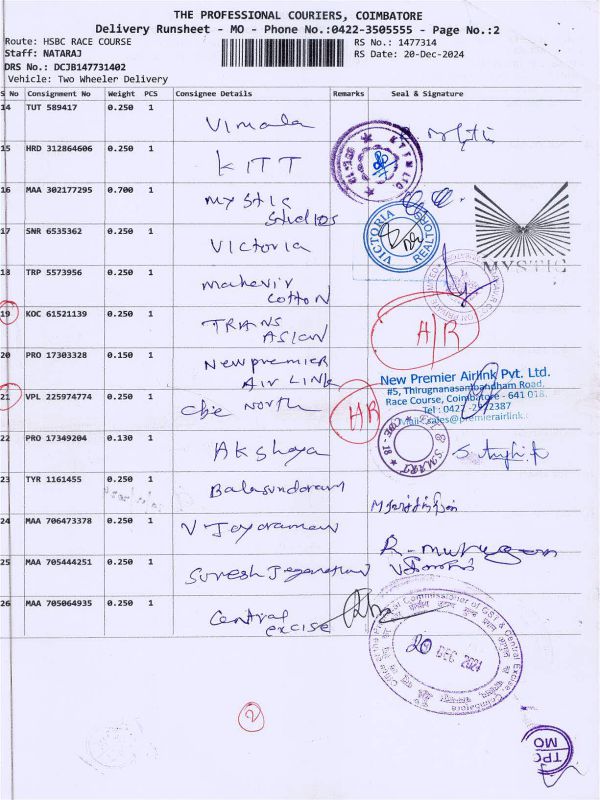 THE PROFESSIONAL COURIERS, COIMBATORE
Delivery Runsheet - MO - Phone No.:0422-3505555 - Page No.:2
Route: HSBC RACE COURSE
RS No.: 1477314
Staff: NATARAJ
RS Date: 20-Dec-2024
DRS No.: DCJB147731402
Vehicle: Two Wheeler Delivery
S No Consignment No Weight PCS Consignee Details Remarks Seal & Signature
14 TUT 589417 0.250 1 Vimala
15 HRD 312864606 0.250 1 KITT
16 MAA 302177295 0.700 1 Mystic
Studios
17 SNR 6535362 0.250 1 Victoria
VICTORIA REALTORS
MYSTIC
18 TRP 5573956 0.250 1 mahavir
cotton
19 KOC 61521139 0.250 1 TRANS
ASIAN
H/R
20 PRO 17303328 0.150 1 New premier
AIR LINK
New Premier Airlink Pvt. Ltd.
#5, Thirugnanasambandham Road,
Race Course, Coimbatore - 641 018.
21 VPL 225974774 0.250 1 cbe North
HR
22 PRO 17349204 0.130 1 Akshaya
23 TYR 1161455 0.250 1 Balasundaram
24 MAA 706473378 0.250 1 V Jayaraman
R-murugan
25 MAA 705444251 0.250 1 Suresh Jeganathan
26 MAA 705064935 0.250 1 Central
excise
Commissioner of GST & Central Excise
20 DEC 2024
Coimbatore
2
TPC
MO